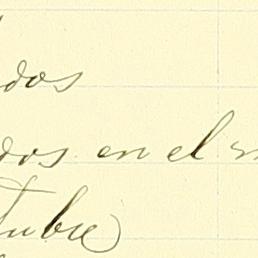 dos
dos en el m
tubre